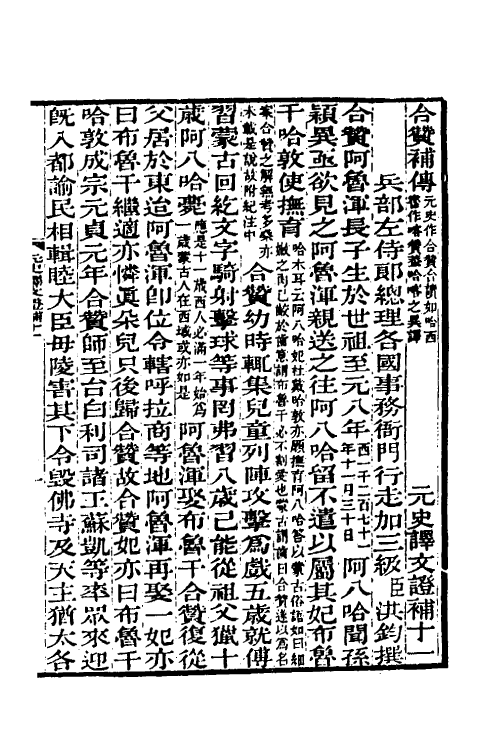 合贊補傳 元史作合贊合讀如哈西書作喀贊喀之異譯 元史譯文證補十一
兵部左侍郎總理各國事務衙門行走加三級臣洪鈞撰
合贊阿魯渾長子生於世祖至元八年 西一千二百七十一年十一月三十日 阿八哈聞孫
穎異亟欲見之阿魯渾親送之往阿八哈留不遣以屬其妃布魯
干哈敦使撫育 哈木耳云阿八哈妃杜戴哈敦亦願撫育阿八哈答以蒙古俗諺如曰細
案合贊之解無考多桑亦未載是說故附紀注中 合贊幼時輒集兒童列陣攻擊爲戲五歲就傅
習蒙古回紇文字騎射擊球等事罔弗習八歲已能從祖父獵十
歲阿八哈薨 應是十一歲西人必滿一年始爲一歲蒙古人在西域或亦如是 阿魯渾娶布魯干合贊復從
父居於東迨阿魯渾卽位令轄呼拉商等地阿魯渾再娶一妃亦
曰布魯干繼適亦憐眞朵兒只後歸合贊故合贊妃亦曰布魯干
哈敦成宗元貞元年合贊師至台白利司諸王蘇凱等率眾來迎
旣入都諭民相輯睦大臣毋陵害其下令毀佛寺及天主猶太各
元史譯文證補十一